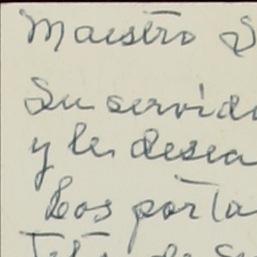 Maestro S
Su servido
y les desea
Los porta